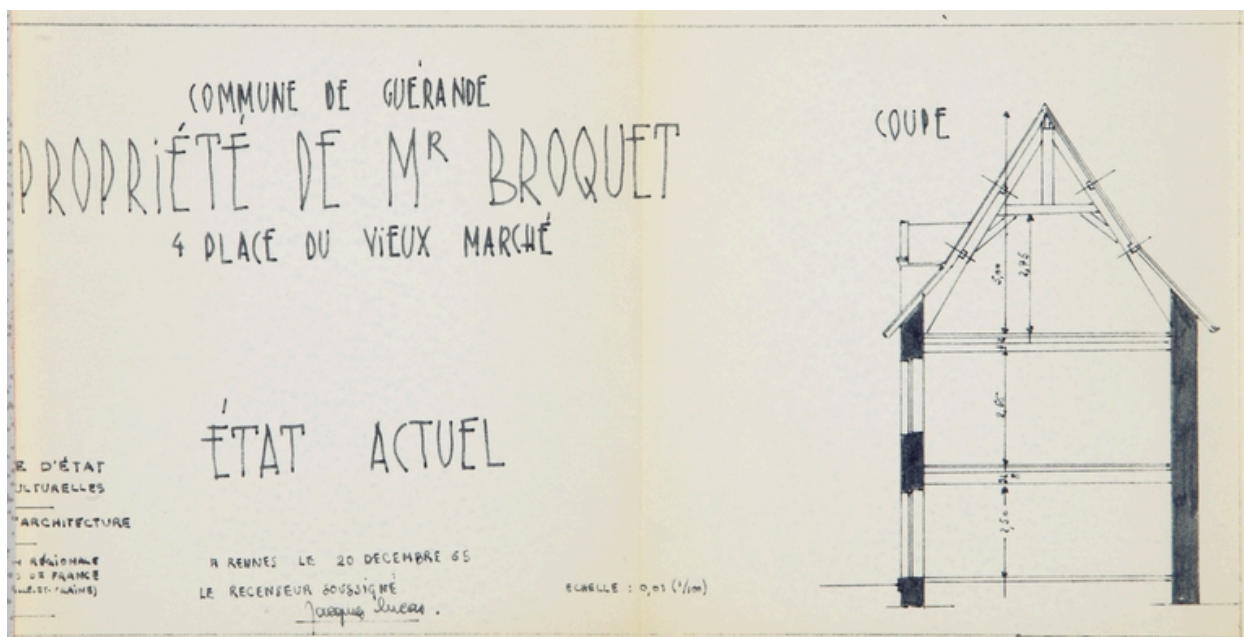 COMMUNE DE GUÉRANDE
PROPRiÉTÉ DE MR BROQUET
4 PLACE DU ViEUX MARCHÉ
ÉTAT ACTUEL
E D'ÉTAT
ULTURELLES
ARCHITECTURE
RÉGIONALE
DE FRANCE
A RENNES LE 20 DECEMBRE 65
LE RECENSEUR SOUSSIGNÉ
Jacques Lucas.
ECHELLE : 0,01 (1/100)
COUPE
5,00
2,75
2,50